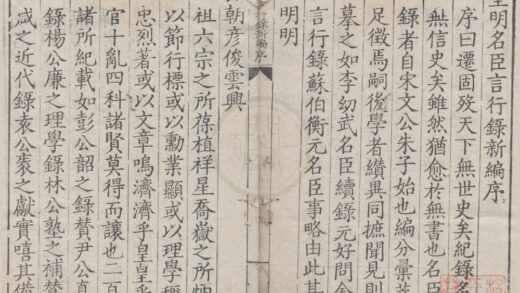 明名臣言行錄新編序
序曰遷固歿天下無世史矣紀錄名
無信史矣雖然猶愈於無書也名臣
錄者自宋文公朱子始也編分彙
足徵焉嗣後學者纘異同摭聞見則
墓之如李幼武名臣續錄元好問
言行錄蘇伯衡元名臣事略由此其
明明
行錄新編序
朝彥俊雲興
祖六宗之所葆植祥星喬嶽之所
以節行標或以勳業顯或以理學稱
忠烈著或以文章鳴濟濟乎皇皇乎
官十亂四科諸賢莫得而讓也二百
諸所紀載如彭公韶之錄贊尹公直
錄楊公廉之理學錄林公塾之補贊
咸之近代錄袁公袠之獻實嘻其備